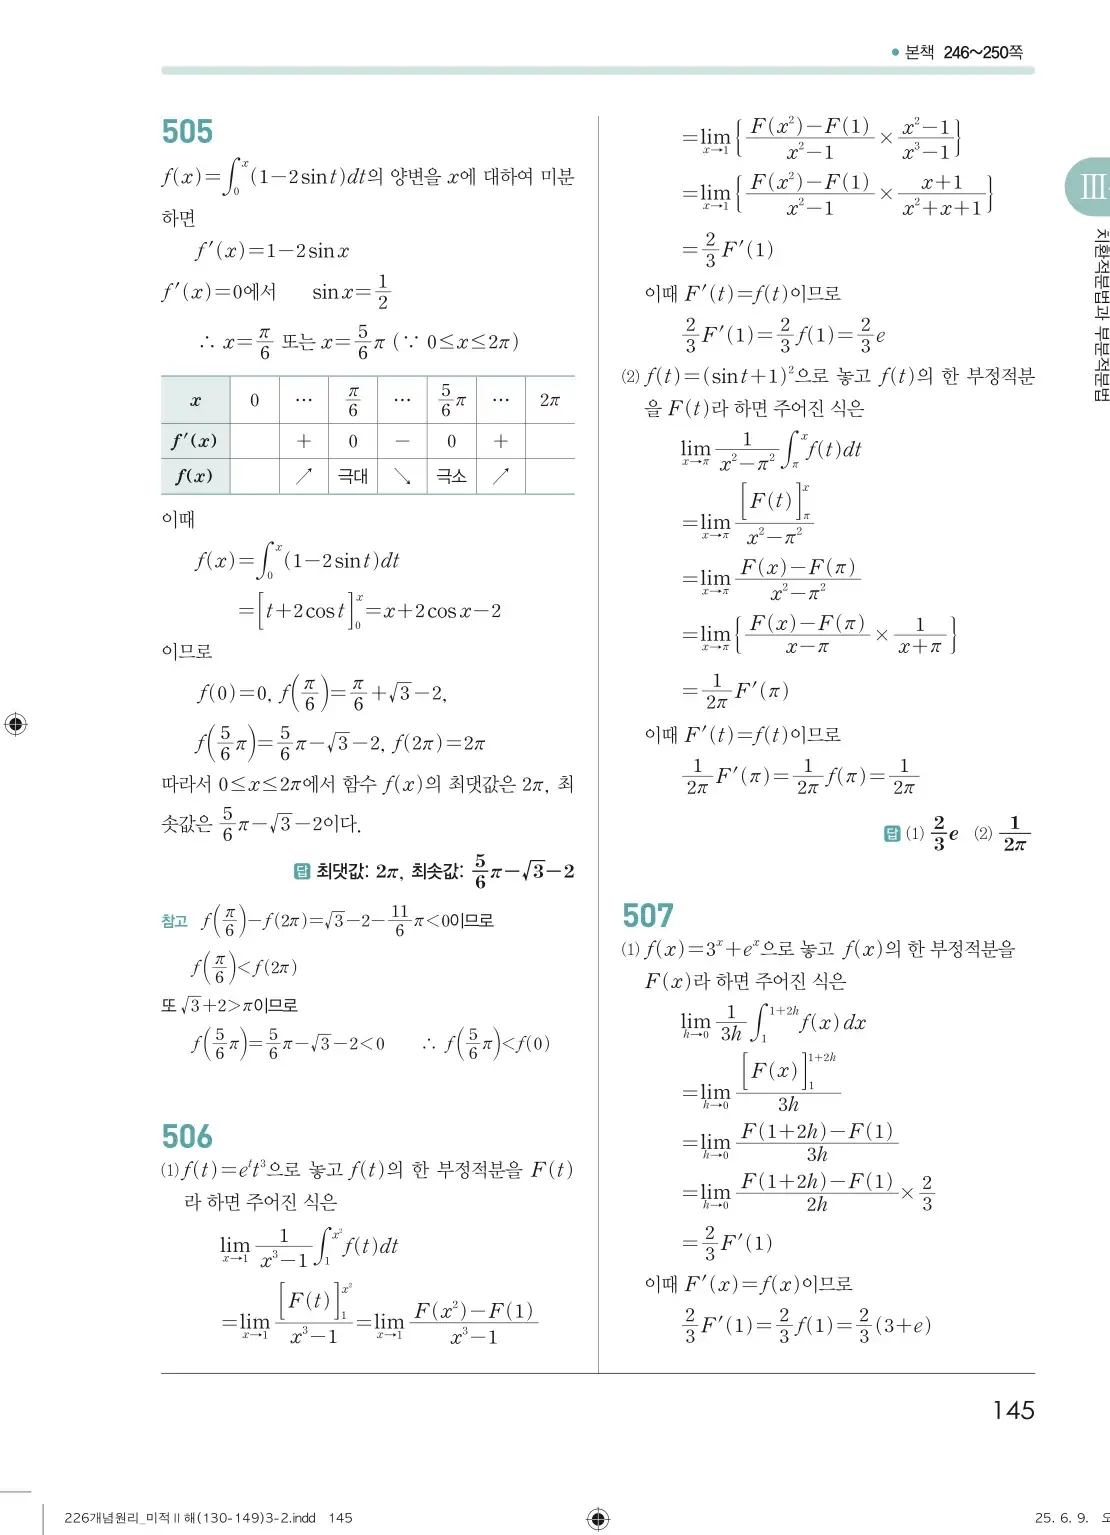 • 본책 246~250쪽
505
f(x)=∫₀ˣ(1-2sin t)dt의 양변을 x에 대하여 미분
하면
f′(x)=1-2sin x
f′(x)=0에서 sin x=1/2
∴ x=π/6 또는 x=5/6π (∵ 0≤x≤2π)
x 0 ⋯ π/6 ⋯ 5/6π ⋯ 2π
f′(x) + 0 - 0 +
f(x) ↗ 극대 ↘ 극소 ↗
이때
f(x)=∫₀ˣ(1-2sin t)dt
=[t+2cos t]₀ˣ=x+2cos x-2
이므로
f(0)=0, f(π/6)=π/6+√3-2,
f(5/6π)=5/6π-√3-2, f(2π)=2π
따라서 0≤x≤2π에서 함수 f(x)의 최댓값은 2π, 최
솟값은 5/6π-√3-2이다.
답 최댓값: 2π, 최솟값: 5/6π-√3-2
참고 f(π/6)-f(2π)=√3-2-11/6π<0이므로
f(π/6)<f(2π)
또 √3+2>π이므로
f(5/6π)=5/6π-√3-2<0 ∴ f(5/6π)<f(0)
506
⑴ f(t)=eᵗt³으로 놓고 f(t)의 한 부정적분을 F(t)
라 하면 주어진 식은
lim_{x→1} 1/(x³-1) ∫₁^{x²} f(t)dt
=lim_{x→1} [F(t)]₁^{x²}/(x³-1)=lim_{x→1} (F(x²)-F(1))/(x³-1)
=lim_{x→1} {(F(x²)-F(1))/(x²-1) × (x²-1)/(x³-1)}
=lim_{x→1} {(F(x²)-F(1))/(x²-1) × (x+1)/(x²+x+1)}
=2/3 F′(1)
이때 F′(t)=f(t)이므로
2/3 F′(1)=2/3 f(1)=2/3 e
⑵ f(t)=(sin t+1)²으로 놓고 f(t)의 한 부정적분
을 F(t)라 하면 주어진 식은
lim_{x→π} 1/(x²-π²) ∫_π^x f(t)dt
=lim_{x→π} [F(t)]_π^x/(x²-π²)
=lim_{x→π} (F(x)-F(π))/(x²-π²)
=lim_{x→π} {(F(x)-F(π))/(x-π) × 1/(x+π)}
=1/2π F′(π)
이때 F′(t)=f(t)이므로
1/2π F′(π)=1/2π f(π)=1/2π
답 ⑴ 2/3 e ⑵ 1/2π
507
⑴ f(x)=3ˣ+eˣ으로 놓고 f(x)의 한 부정적분을
F(x)라 하면 주어진 식은
lim_{h→0} 1/3h ∫₁^{1+2h} f(x)dx
=lim_{h→0} [F(x)]₁^{1+2h}/3h
=lim_{h→0} (F(1+2h)-F(1))/3h
=lim_{h→0} (F(1+2h)-F(1))/2h × 2/3
=2/3 F′(1)
이때 F′(x)=f(x)이므로
2/3 F′(1)=2/3 f(1)=2/3 (3+e)
Ⅲ
치환적분법과 부분적분법
145
226개념원리_미적Ⅱ해(130-149)3-2.indd 145
25. 6. 9.